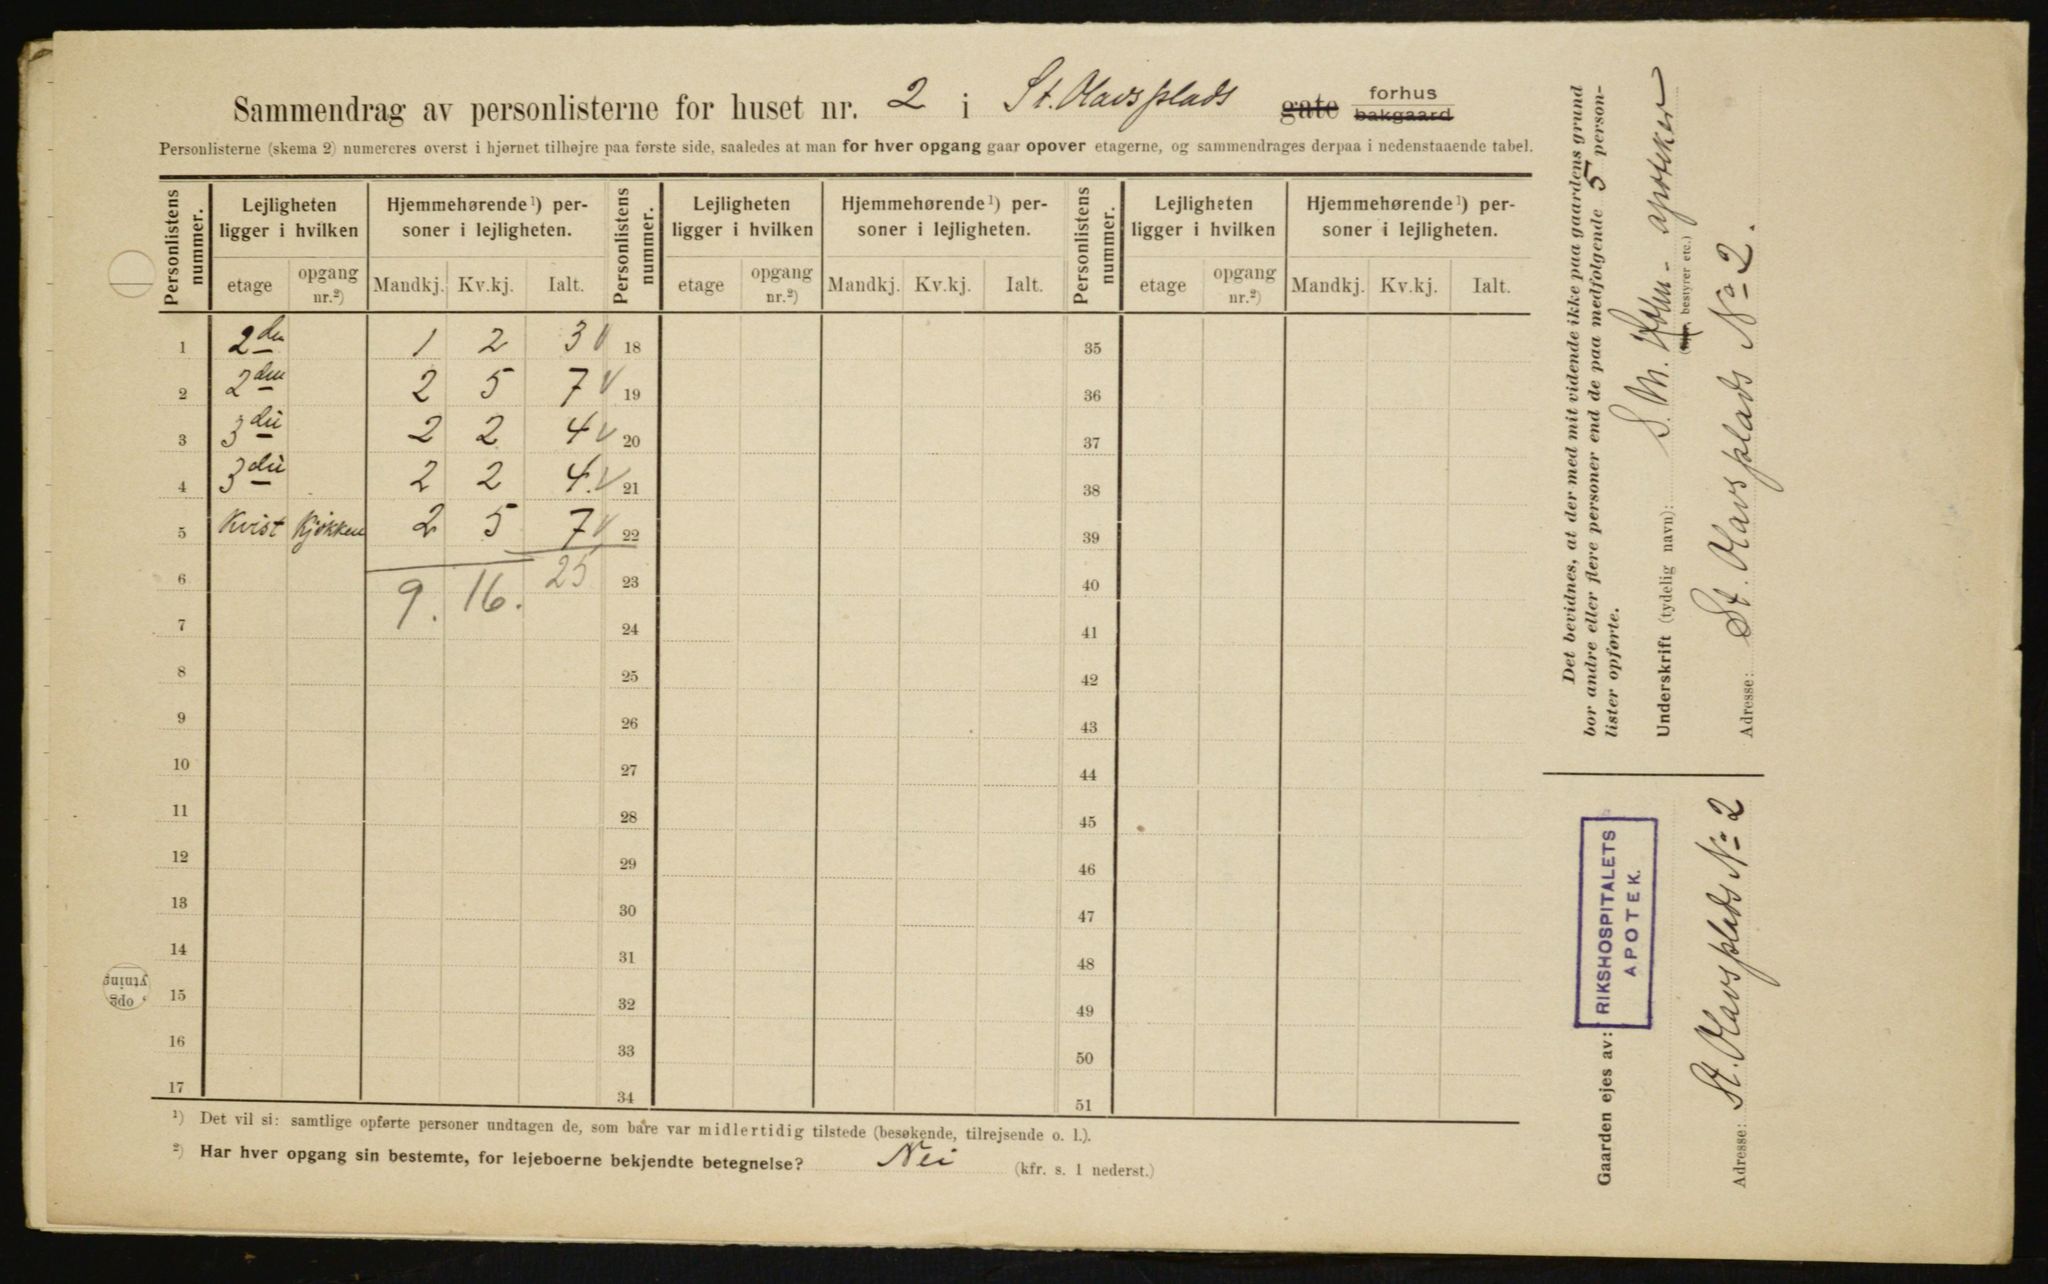 Sammendrag av personlisterne for huset nr. 2 i St. Olavsplads gate forhus bakgaard
Personlisterne (skema 2) numereres øverst i hjørnet tilhøjre paa første side, saaledes at man for hver opgang gaar opover etagerne, og sammendrages derpaa i nedenstaaende tabel.
Personlistens nummer. Lejligheten ligger i hvilken Hjemmehørende ¹) personer i lejligheten. Personlistens nummer. Lejligheten ligger i hvilken Hjemmehørende ¹) personer i lejligheten. Personlistens nummer. Lejligheten ligger i hvilken Hjemmehørende ¹) personer i lejligheten.
etage opgang nr.²) Mandkj. Kv.kj. Ialt. etage opgang nr.²) Mandkj. Kv.kj. Ialt. etage opgang nr.²) Mandkj. Kv.kj. Ialt.
1 2den 1 2 3 V 18 35
2 2den 2 5 7 V 19 36
3 3die 2 2 4 V 20 37
4 3die 2 2 4. V 21 38
5 Kvist Kjøkken 2 5 7 V 22 39
6 9. 16. 25 23 40
7 24 41
8 25 42
9 26 43
10 27 44
11 28 45
12 29 46
13 30 47
14 31 48
15 32 49
16 33 50
17 34 51
¹) Det vil si: samtlige opførte personer undtagen de, som bare var midlertidig tilstede (besøkende, tilrejsende o. l.).
²) Har hver opgang sin bestemte, for lejeboerne bekjendte betegnelse? Nei (kfr. s. 1 nederst.)
Det bevidnes, at der med mit vidende ikke paa gaardens grund
bor andre eller flere personer end de paa medfølgende 5 person-
lister opførte.
Underskrift (tydelig navn): S. M. Holm - apotheker
bestyrer etc.)
Adresse: St. Olavsplads No 2.
Gaarden ejes av: RIKSHOSPITALETS
APOTEK.
Adresse: St. Olavsplads No 2
opg
ytning